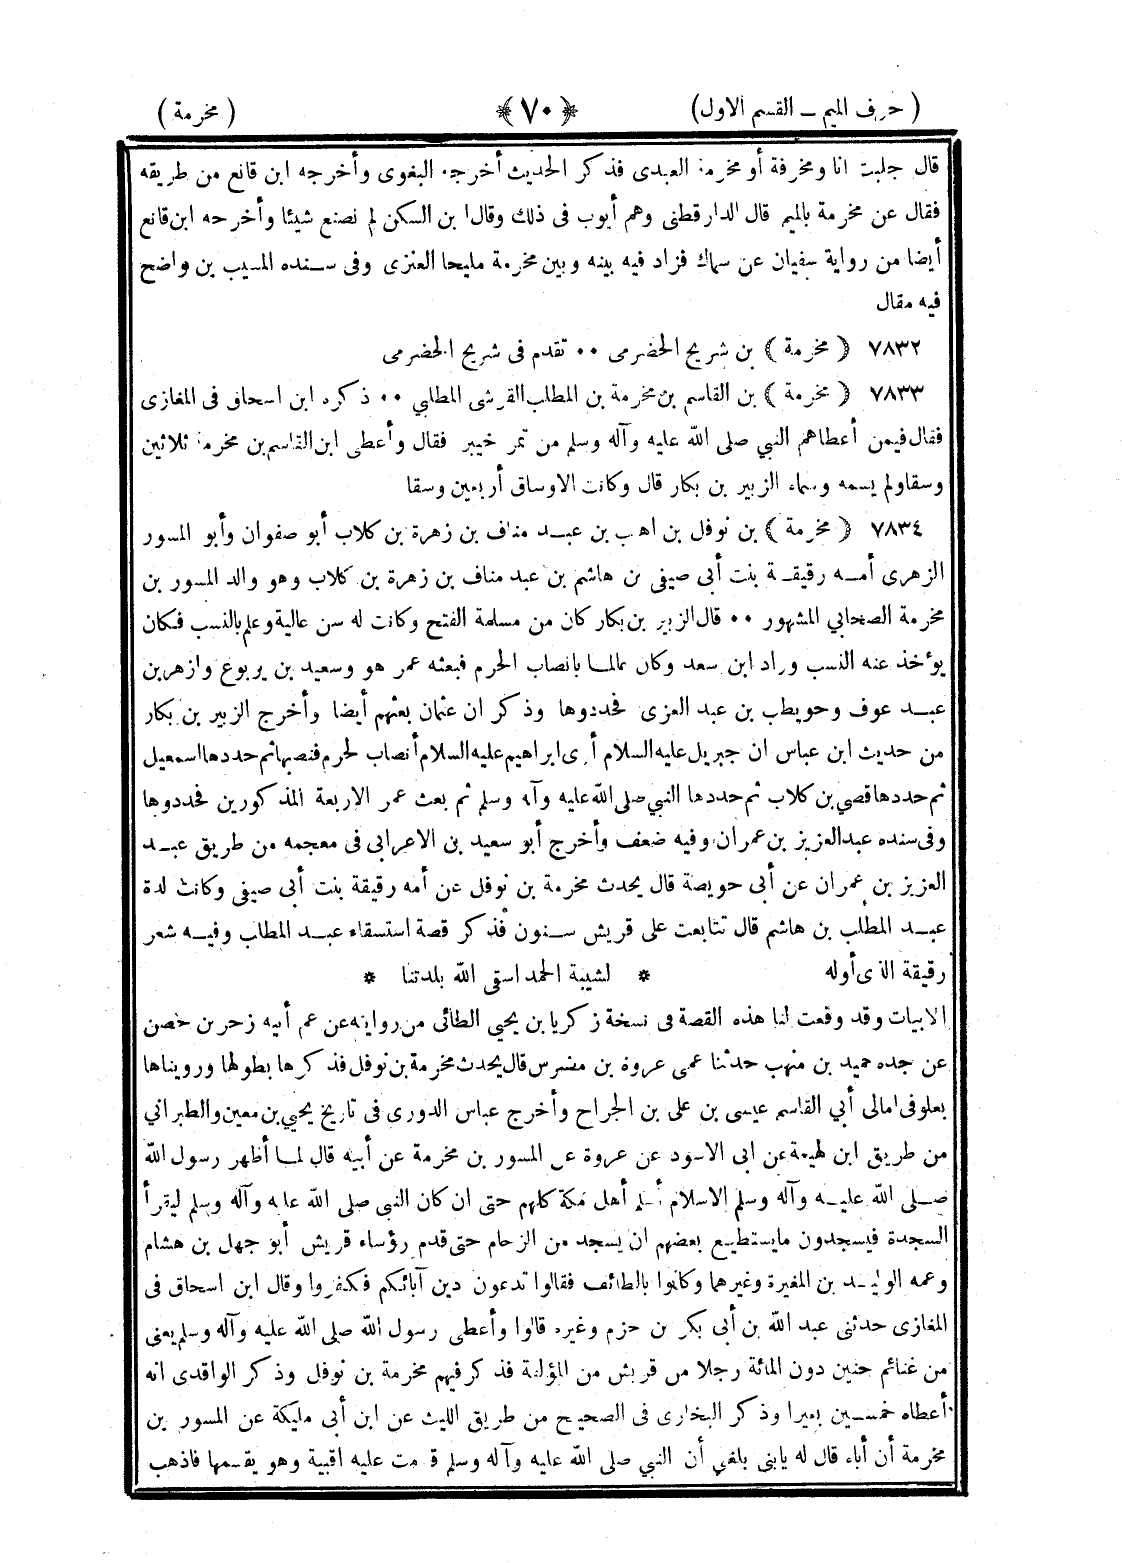 ( حرف الميم ــ القسم الاول ) ﴿ ٧٠ ﴾ ( مخرمة )
قال جلبت انا ومخرفة أو مخرمة العبدى فذكر الحديث أخرجه البغوى وأخرجه ابن قانع من طريقه
فقال عن مخرمة بالميم قال الدارقطنى وهم أيوب فى ذلك وقال ابن السكن لم نصنع شيئا وأخرجه ابن قانع
أيضا من رواية سفيان عن سماك فزاد فيه بينه وبين مخرمة مليحا العنزى وفى سنده المسيب بن واضح
فيه مقال
٧٨٣٢ ( مخرمة ) بن شريح الحضرمى ٠٠ تقدم فى شريح الحضرمى
٧٨٣٣ ( مخرمة ) بن القاسم بن مخرمة بن المطلب القرشى المطلبي ٠٠ ذكره ابن اسحاق فى المغازى
فقال فيمن أعطاهم النبي صلى الله عليه وآله وسلم من تمر خيبر فقال وأعطى ابن القاسم بن مخرمة ثلاثين
وسقا ولم يسمه وسماه الزبير بن بكار قال وكانت الاوساق أربعين وسقا
٧٨٣٤ ( مخرمة ) بن نوفل بن اهيب بن عبد مناف بن زهرة بن كلاب أبو صفوان وأبو المسور
الزهرى أمه رقيقة بنت أبى صيفى بن هاشم بن عبد مناف بن زهرة بن كلاب وهو والد المسور بن
مخرمة الصحابي المشهور ٠٠ قال الزبير بن بكار كان من مسلمة الفتح وكانت له سن عالية وعلم بالنسب فكان
يؤخذ عنه النسب وزاد ابن سعد وكان عالما بانصاب الحرم فبعثه عمر هو وسعيد بن يربوع وازهر بن
عبد عوف وحويطب بن عبد العزى فحددوها وذكر ان عثمان بعثهم أيضا وأخرج الزبير بن بكار
من حديث ابن عباس ان جبريل عليه السلام أرى ابراهيم عليه السلام أنصاب الحرم فنصبها ثم حددها اسمعيل
ثم حددها قصي بن كلاب ثم حددها النبي صلى الله عليه وآله وسلم ثم بعث عمر الاربعة المذكورين فحددوها
وفى سنده عبد العزيز بن عمران وفيه ضعف وأخرج أبو سعيد بن الاعرابى فى معجمه من طريق عبد
العزيز بن عمران عن أبى حويصة قال يحدث مخرمة بن نوفل عن أمه رقيقة بنت أبى صيفى وكانت لدة
عبد المطلب بن هاشم قال تتابعت على قريش سنون فذكر قصة استسقاء عبد المطلب وفيه شعر
رقيقة الذى أوله * لشيبة الحمد اسقى الله بلدتنا *
الابيات وقد وقعت لنا هذه القصة فى نسخة زكريا بن يحيى الطائى من روايته عن عم أبيه زحر بن حصن
عن جده حميد بن منهب حدثنا عمى عروة بن مضرس قال يحدث مخرمة بن نوفل فذكرها بطولها ورويناها
بعلو فى امالى أبي القاسم عيسى بن على بن الجراح وأخرج عباس الدورى فى تاريخ يحيي بن معين والطبراني
من طريق ابن لهيعة عن ابى الاسود عن عروة عن المسور بن مخرمة عن أبيه قال لما أظهر رسول الله
صلى الله عليه وآله وسلم الاسلام أسلم أهل مكة كلهم حتى ان كان النبي صلى الله عليه وآله وسلم ليقرأ
السجدة فيسجدون مايستطيع بعضهم ان يسجد من الزحام حتى قدم رؤساء قريش أبو جهل بن هشام
وعمه الوليد بن المغيرة وغيرهما وكانوا بالطائف فقالوا تدعون دين آبائكم فكفروا وقال ابن اسحاق فى
المغازى حدثنى عبد الله بن أبى بكر بن حزم وغيره قالوا وأعطى رسول الله صلى الله عليه وآله وسلم يعنى
من غنائم حنين دون المائة رجلا من قريش من المؤلفة فذكر فيهم مخرمة بن نوفل وذكر الواقدى انه
أعطاه خمسين بعيرا وذكر البخارى فى الصحيح من طريق الليث عن ابن أبى مليكة عن المسور بن
مخرمة أن أباه قال له يابنى بلغنى أن النبي صلى الله عليه وآله وسلم قدمت عليه اقبية وهو يقسمها فاذهب